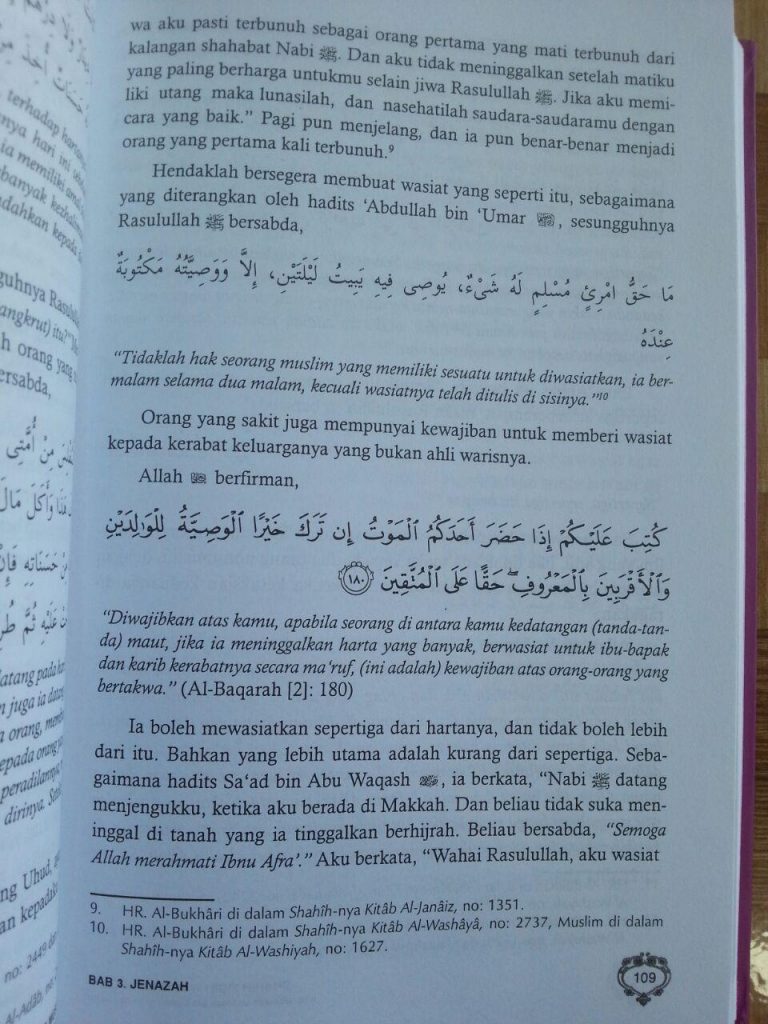 wa aku pasti terbunuh sebagai orang pertama yang mati terbunuh dari
kalangan shahabat Nabi ﷺ. Dan aku tidak meninggalkan setelah matiku
yang paling berharga untukmu selain jiwa Rasulullah ﷺ. Jika aku memi-
liki utang maka lunasilah, dan nasehatilah saudara-saudaramu dengan
cara yang baik.” Pagi pun menjelang, dan ia pun benar-benar menjadi
orang yang pertama kali terbunuh.⁹
Hendaklah bersegera membuat wasiat yang seperti itu, sebagaimana
yang diterangkan oleh hadits ‘Abdullah bin ‘Umar , sesungguhnya
Rasulullah ﷺ bersabda,
مَا حَقُّ امْرِئٍ مُسْلِمٍ لَهُ شَيْءٌ، يُوصِى فِيهِ يَبِيتُ لَيْلَتَيْنِ، إِلاَّ وَوَصِيَّتُهُ مَكْتُوبَةٌ
عِنْدَهُ
“Tidaklah hak seorang muslim yang memiliki sesuatu untuk diwasiatkan, ia ber-
malam selama dua malam, kecuali wasiatnya telah ditulis di sisinya.”¹⁰
Orang yang sakit juga mempunyai kewajiban untuk memberi wasiat
kepada kerabat keluarganya yang bukan ahli warisnya.
Allah berfirman,
كُتِبَ عَلَيْكُمْ إِذَا حَضَرَ أَحَدَكُمُ ٱلْمَوْتُ إِن تَرَكَ خَيْرًا ٱلْوَصِيَّةُ لِلْوَٰلِدَيْنِ
وَٱلْأَقْرَبِينَ بِٱلْمَعْرُوفِ ۖ حَقًّا عَلَى ٱلْمُتَّقِينَ ١٨٠
“Diwajibkan atas kamu, apabila seorang di antara kamu kedatangan (tanda-tan-
da) maut, jika ia meninggalkan harta yang banyak, berwasiat untuk ibu-bapak
dan karib kerabatnya secara ma‘ruf, (ini adalah) kewajiban atas orang-orang yang
bertakwa.” (Al-Baqarah [2]: 180)
Ia boleh mewasiatkan sepertiga dari hartanya, dan tidak boleh lebih
dari itu. Bahkan yang lebih utama adalah kurang dari sepertiga. Seba-
gaimana hadits Sa‘ad bin Abu Waqash , ia berkata, “Nabi ﷺ datang
menjengukku, ketika aku berada di Makkah. Dan beliau tidak suka me-
ninggal di tanah yang ia tinggalkan berhijrah. Beliau bersabda, “Semoga
Allah merahmati Ibnu Afra’.” Aku berkata, “Wahai Rasulullah, aku wasiat
9. HR. Al-Bukhâri di dalam Shahîh-nya Kitâb Al-Janâiz, no: 1351.
10. HR. Al-Bukhâri di dalam Shahîh-nya Kitâb Al-Washâyâ, no: 2737, Muslim di dalam
Shahîh-nya Kitâb Al-Washiyah, no: 1627.
BAB 3. JENAZAH
109